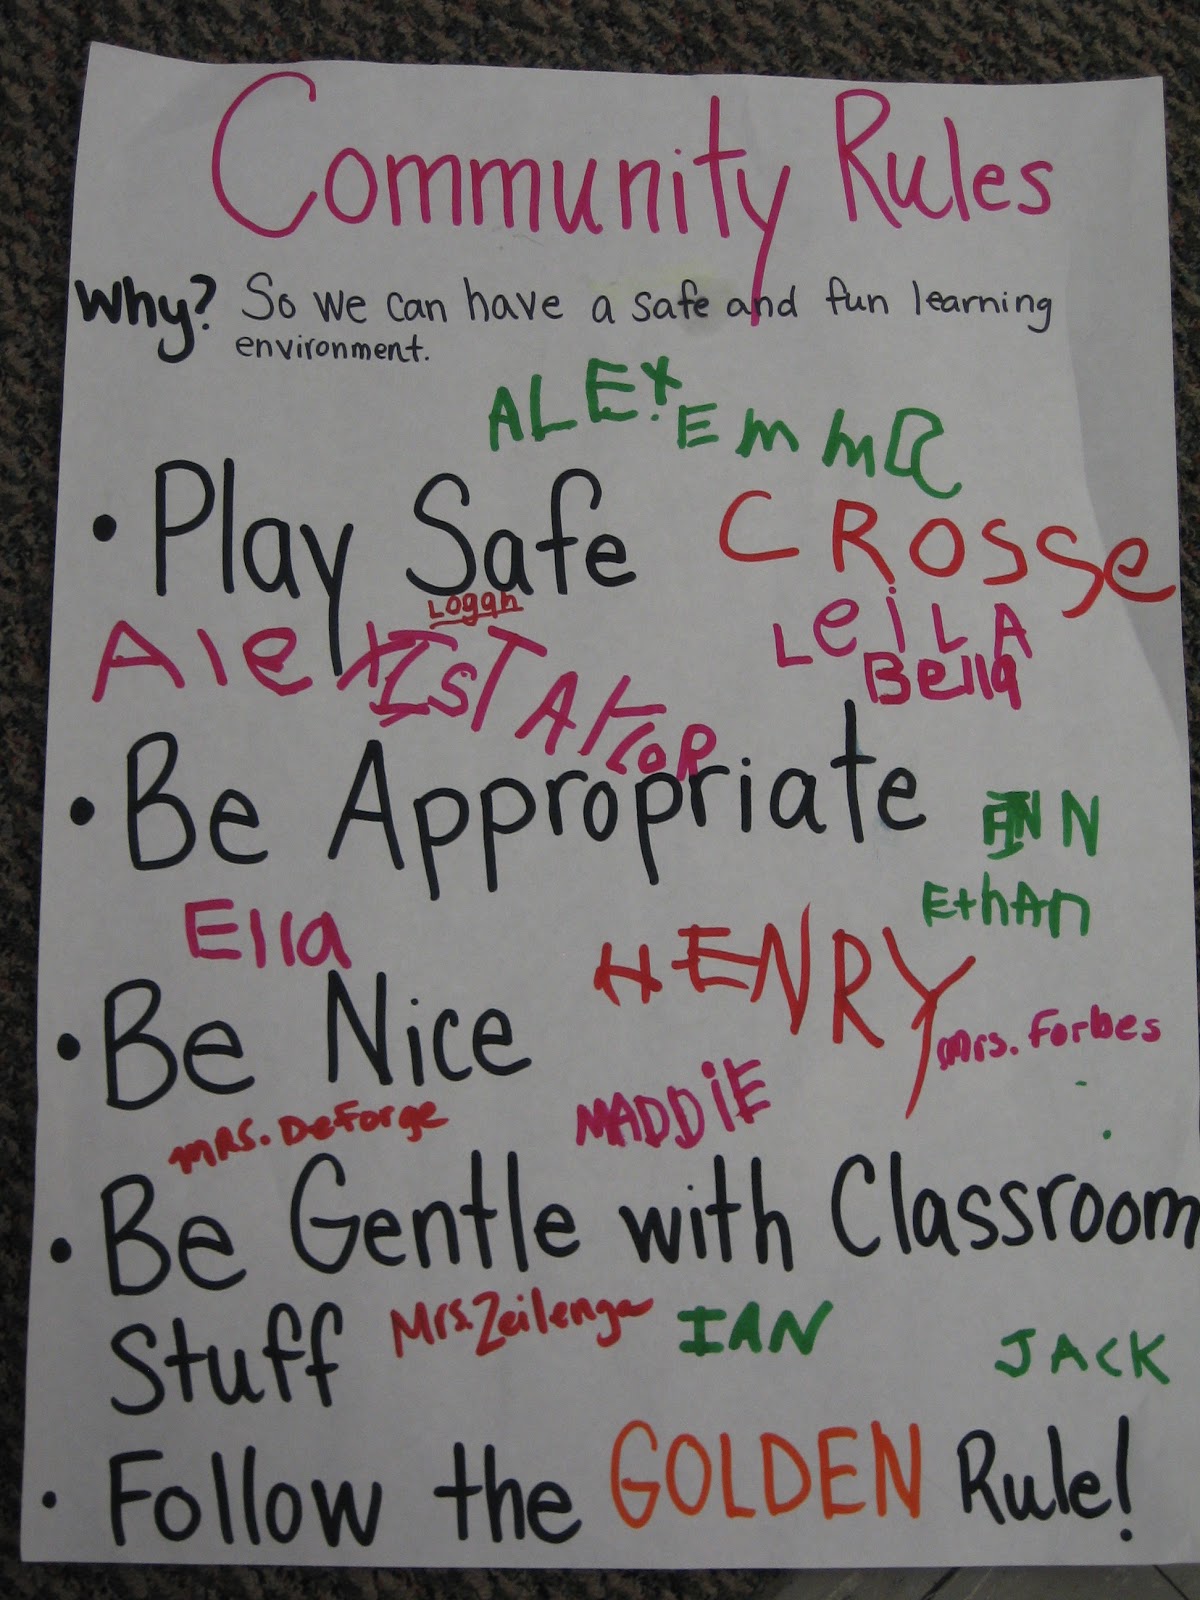 Community Rules
Why? So we can have a safe and fun learning
environment.
ALEX
EmmA
• Play Safe
CROSSe
Logan
LeiLA
Alexis
Bella
TAYLOR
• Be Appropriate
ANN
EthAn
Ella
HENRY
• Be Nice
Mrs. Forbes
MRS. DeForge
MADDiE
• Be Gentle with Classroom
Stuff
Mrs. Zeilenga
IAN
JACK
• Follow the GOLDEN Rule!